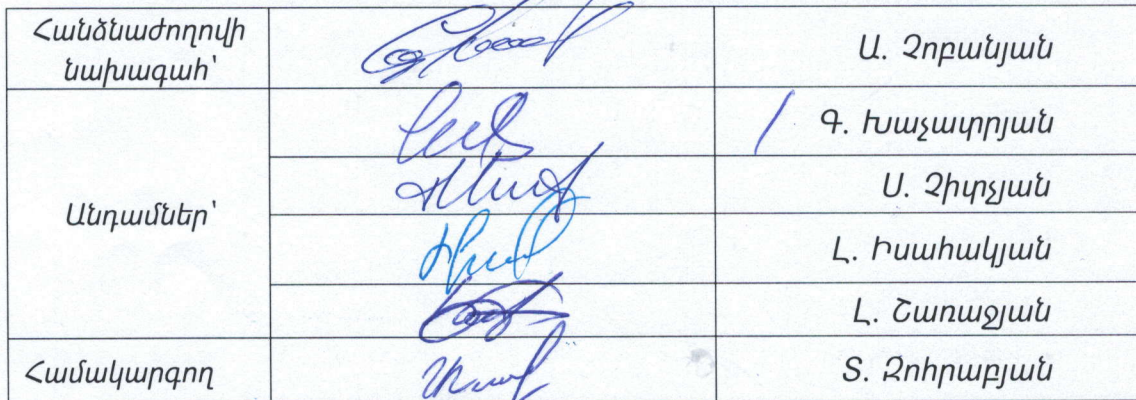 Հանձնաժողովի
նախագահ՝
Ա. Չոբանյան
Գ. Խաչատրյան
Անդամներ՝
Ս. Չիտչյան
Լ. Իսահակյան
Լ. Շառաջյան
Համակարգող
Տ. Զոհրաբյան